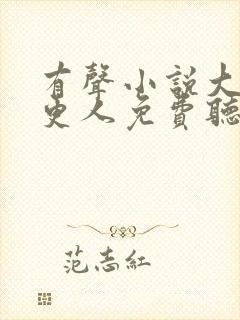 有聲小說大
吏人免費聽
范志紅